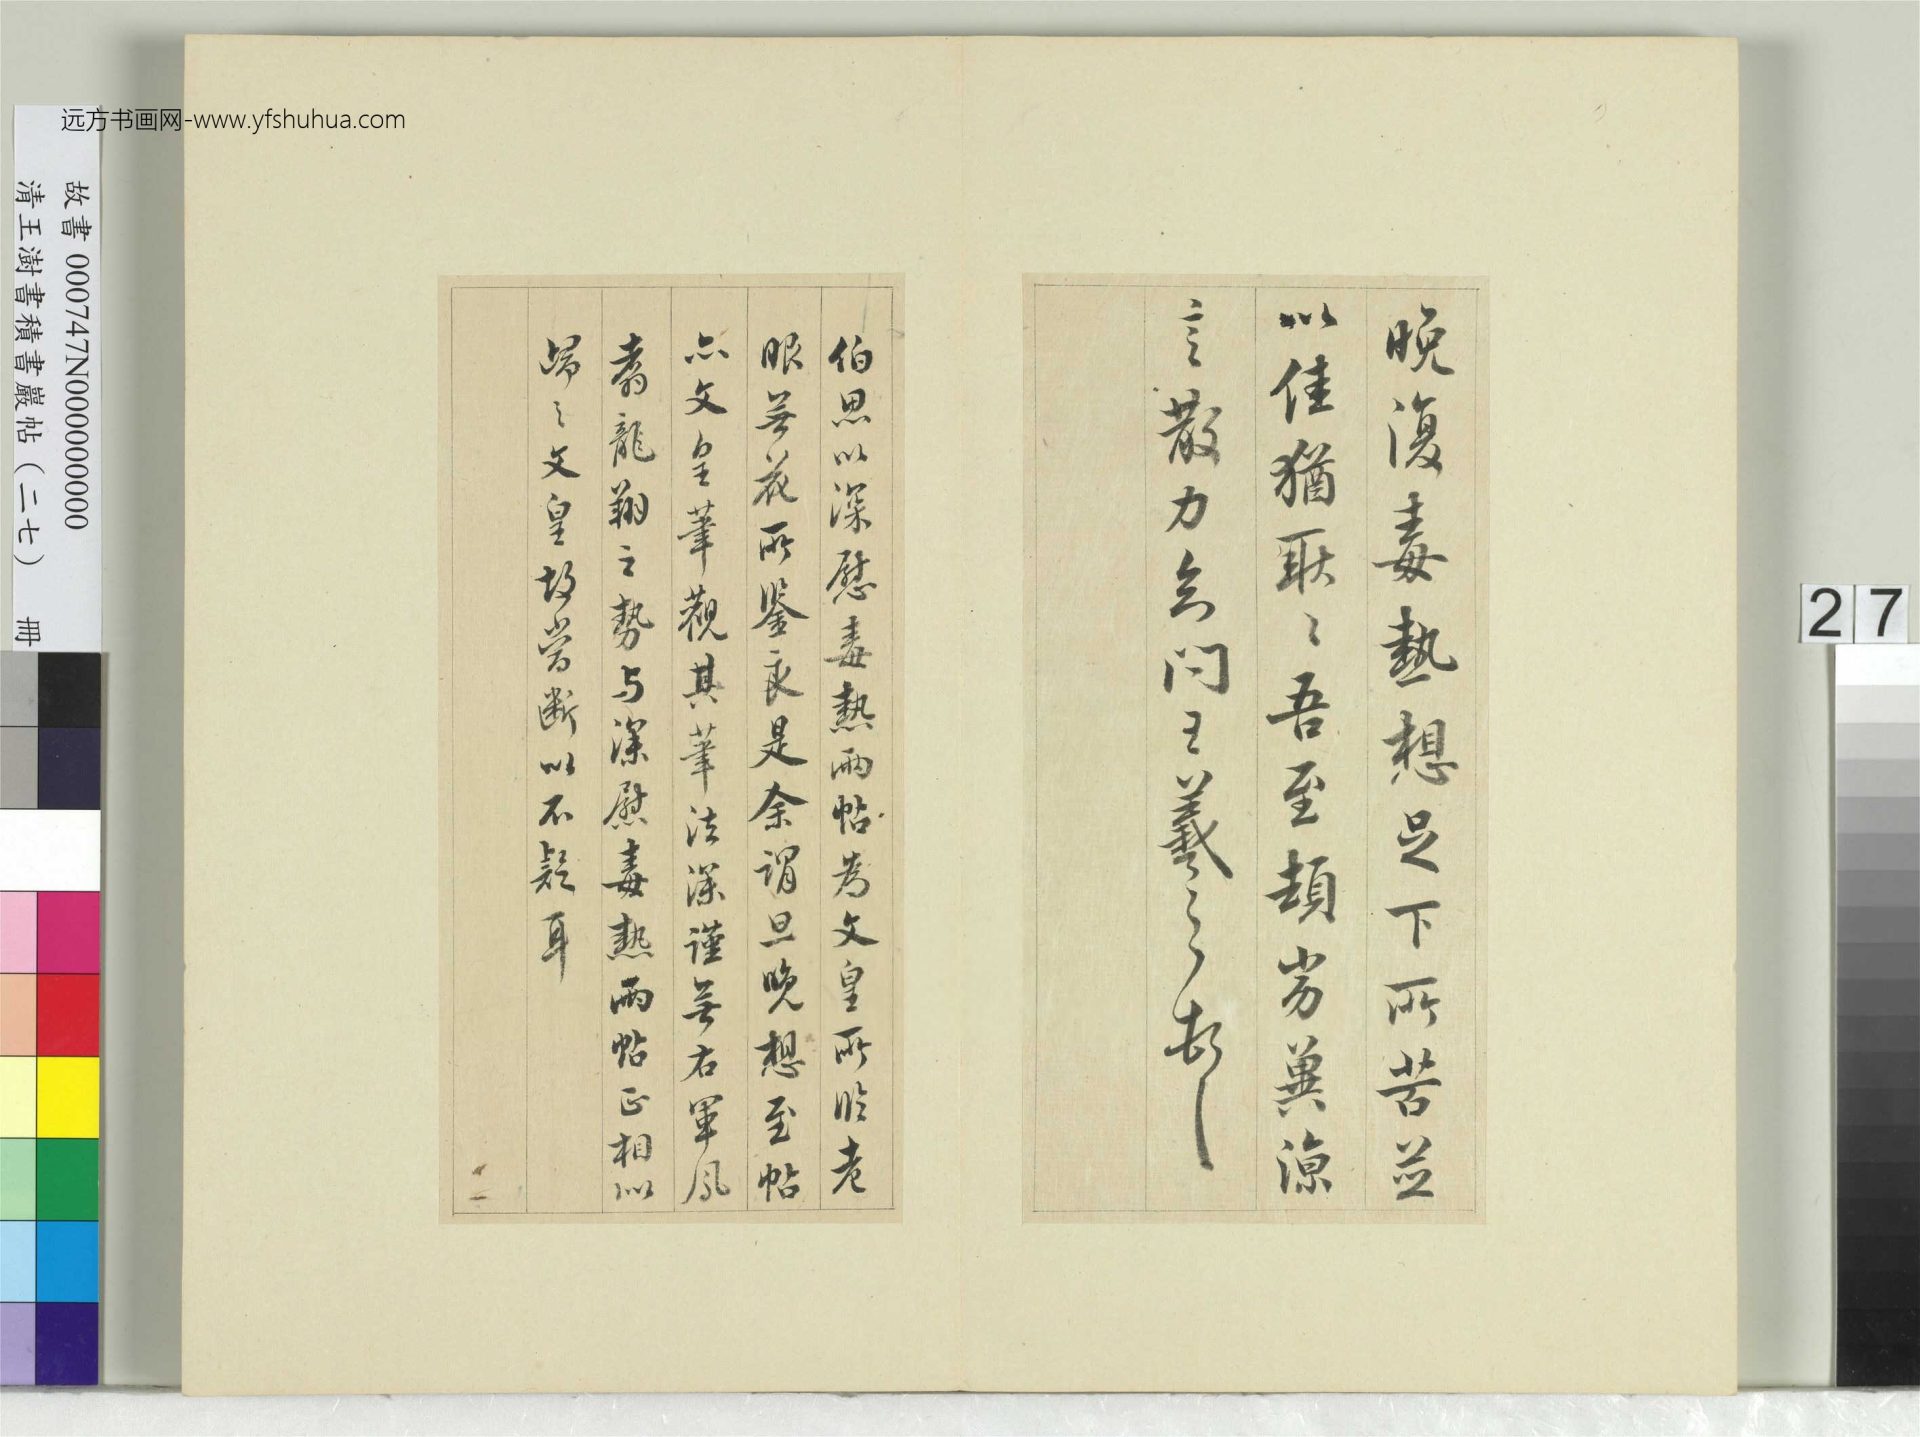 远方书画网-www.yfshuhua.com
故書 000747N000000000
清王澍書積書巖帖(二七) 冊
27
晚復毒熱想足下所苦並
以佳猶耿々吾至頓劣冀涼
言散力知問王羲之頓
伯思以深慰毒熱兩帖為文皇所臨老
眼無花所鑒良是余謂旦晚想至帖
亦文皇筆觀其筆法深謹無右軍鳳
翥龍翔之勢与深慰毒熱兩帖正相似
歸之文皇故當斷以不疑耳